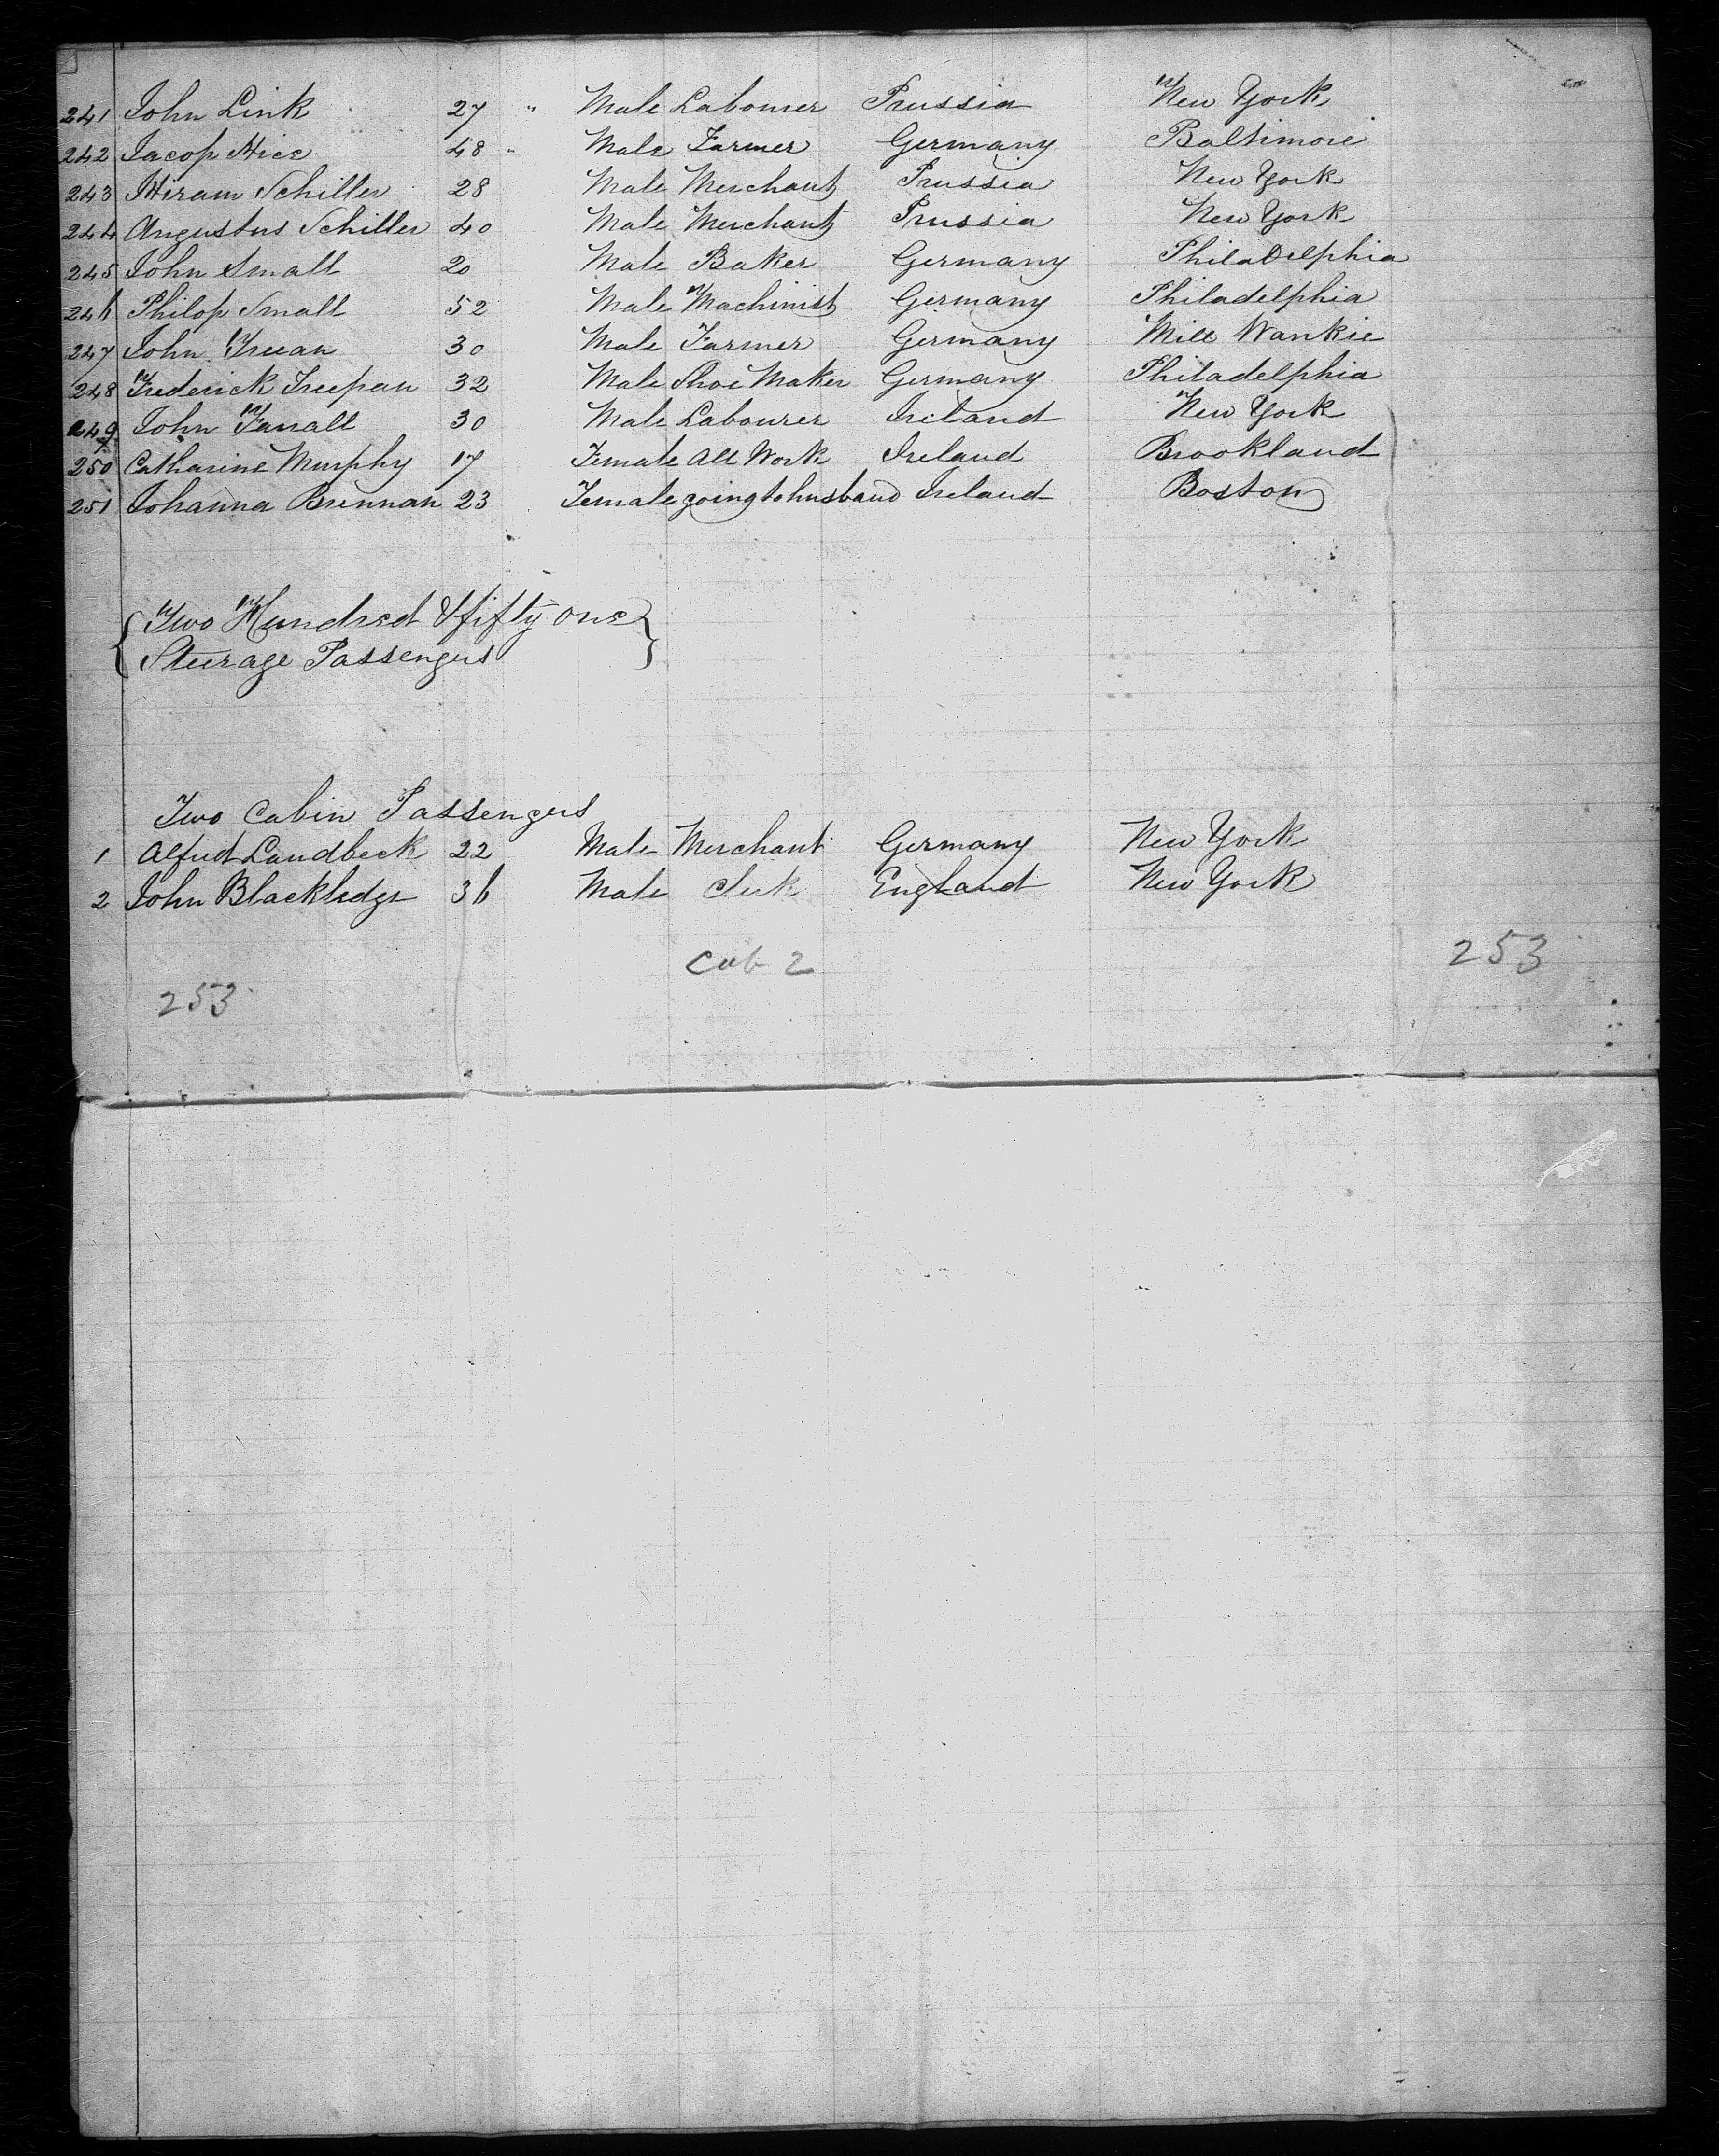 241 John Link 27 " Male Labourer Prussia New York
242 Jacop Hice 48 " Male Farmer Germany Baltimore
243 Hiram Schiller 28 Male Merchant Prussia New York
244 Angustus Schiller 40 Male Merchant Prussia New York
245 John Small 20 Male Baker Germany Philadelphia
246 Philop Small 52 Male Machinist Germany Philadelphia
247 John 30 Male Farmer Germany Mill Wankie
248 Frederick 32 Male Shoe Maker Germany Philadelphia
249 John Farrall 30 Male Labourer Ireland New York
250 Catharine Murphy 17 Female All Work Ireland Brookland
251 Johanna Brennan 23 Female going to husband Ireland Boston
{Two Hundred & fifty one}
{Steerage Passengers}
Two Cabin Passengers
1 Alfred Landbeck 22 Male Merchant Germany New York
2 John Blackledge 36 Male Clerk England New York
Cab 2 253
253